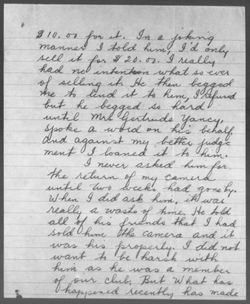 $10.00 for it. In a joking
manner I told him, I'd only
sell it for $20.00. I really
had no intention what so ever
of selling it. He then begged
me to lend it to him, I refused
but he begged so hard
until Mrs Gertrude Yancey,
spoke a word on his behalf,
and against my better judge
ment I loaned it to him.
I never asked him for
the return of my camera
until two weeks had gone by.
When I did ask him, it was
really, a waste of time. He told
all of his friends that I had
sold him the camera and it
was his property. I did not
want to be harsh with
him as he was a member
of our club, But What has
happened recently, has made